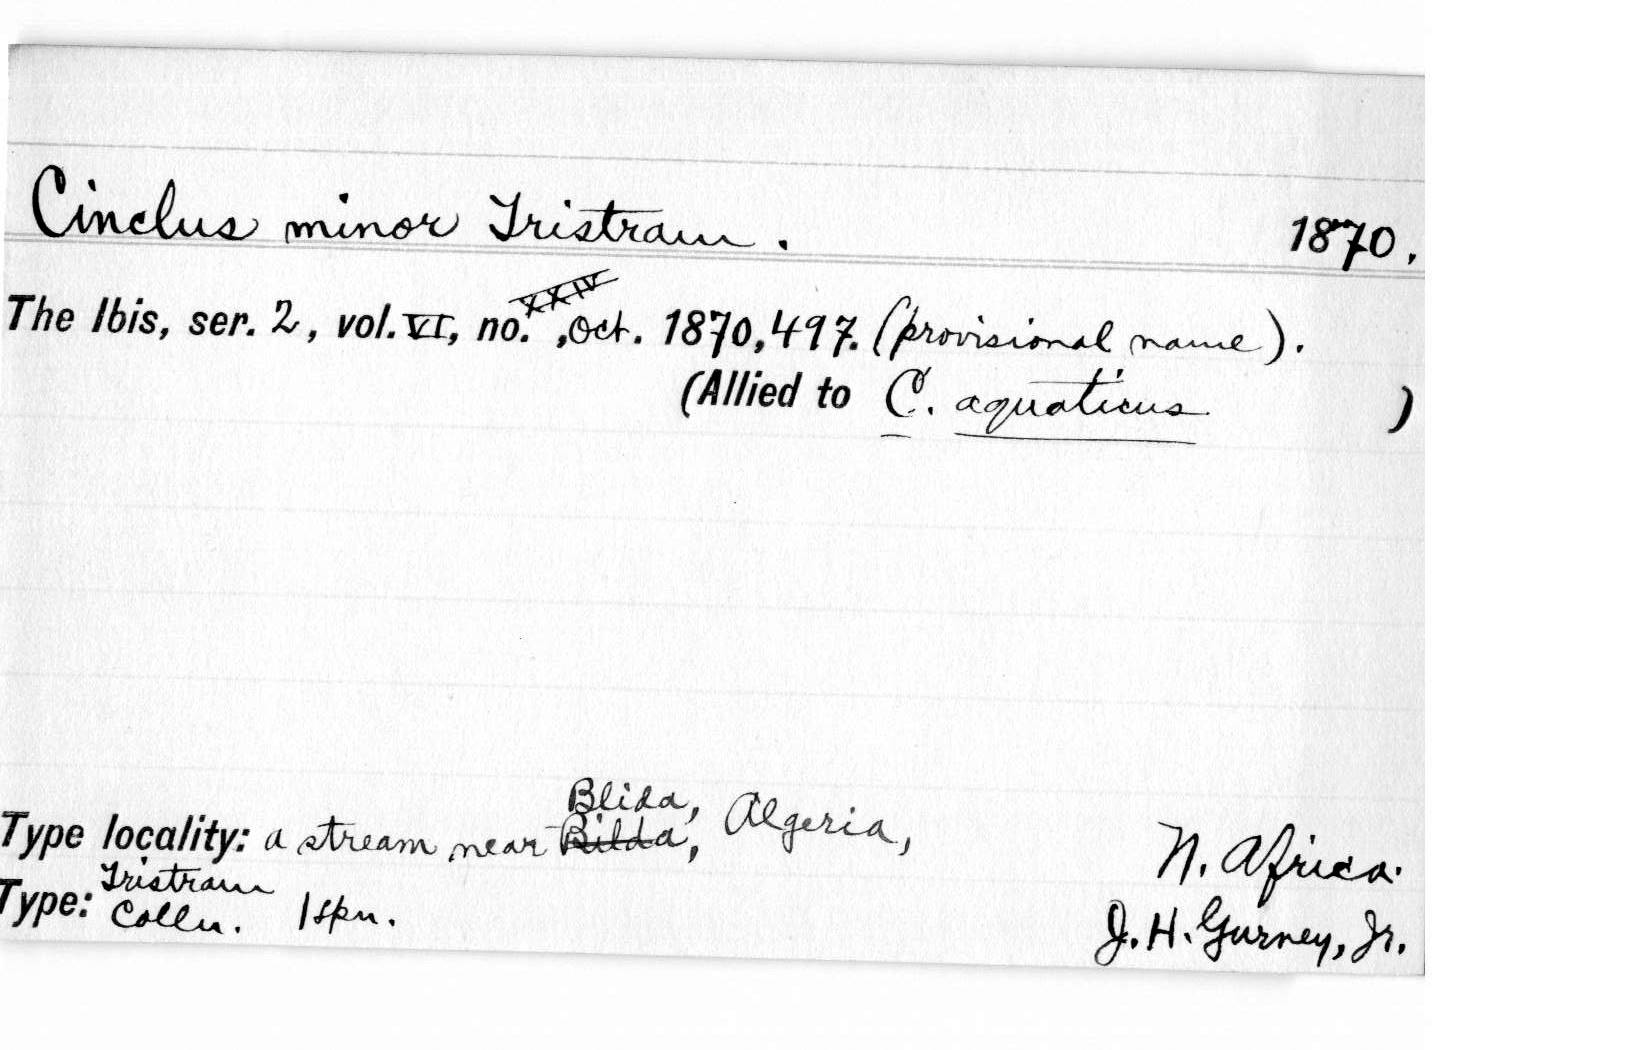 Cinclus minor Tristram. 1870.
The Ibis, ser. 2, vol. VI, no. XXIV, Oct. 1870, 497. (provisional name).
(Allied to C. aquaticus )
Type locality: a stream near Bilda, Blida, Algeria, N. Africa.
Type: Tristram Colln. 1 spn. J. H. Gurney, Jr.